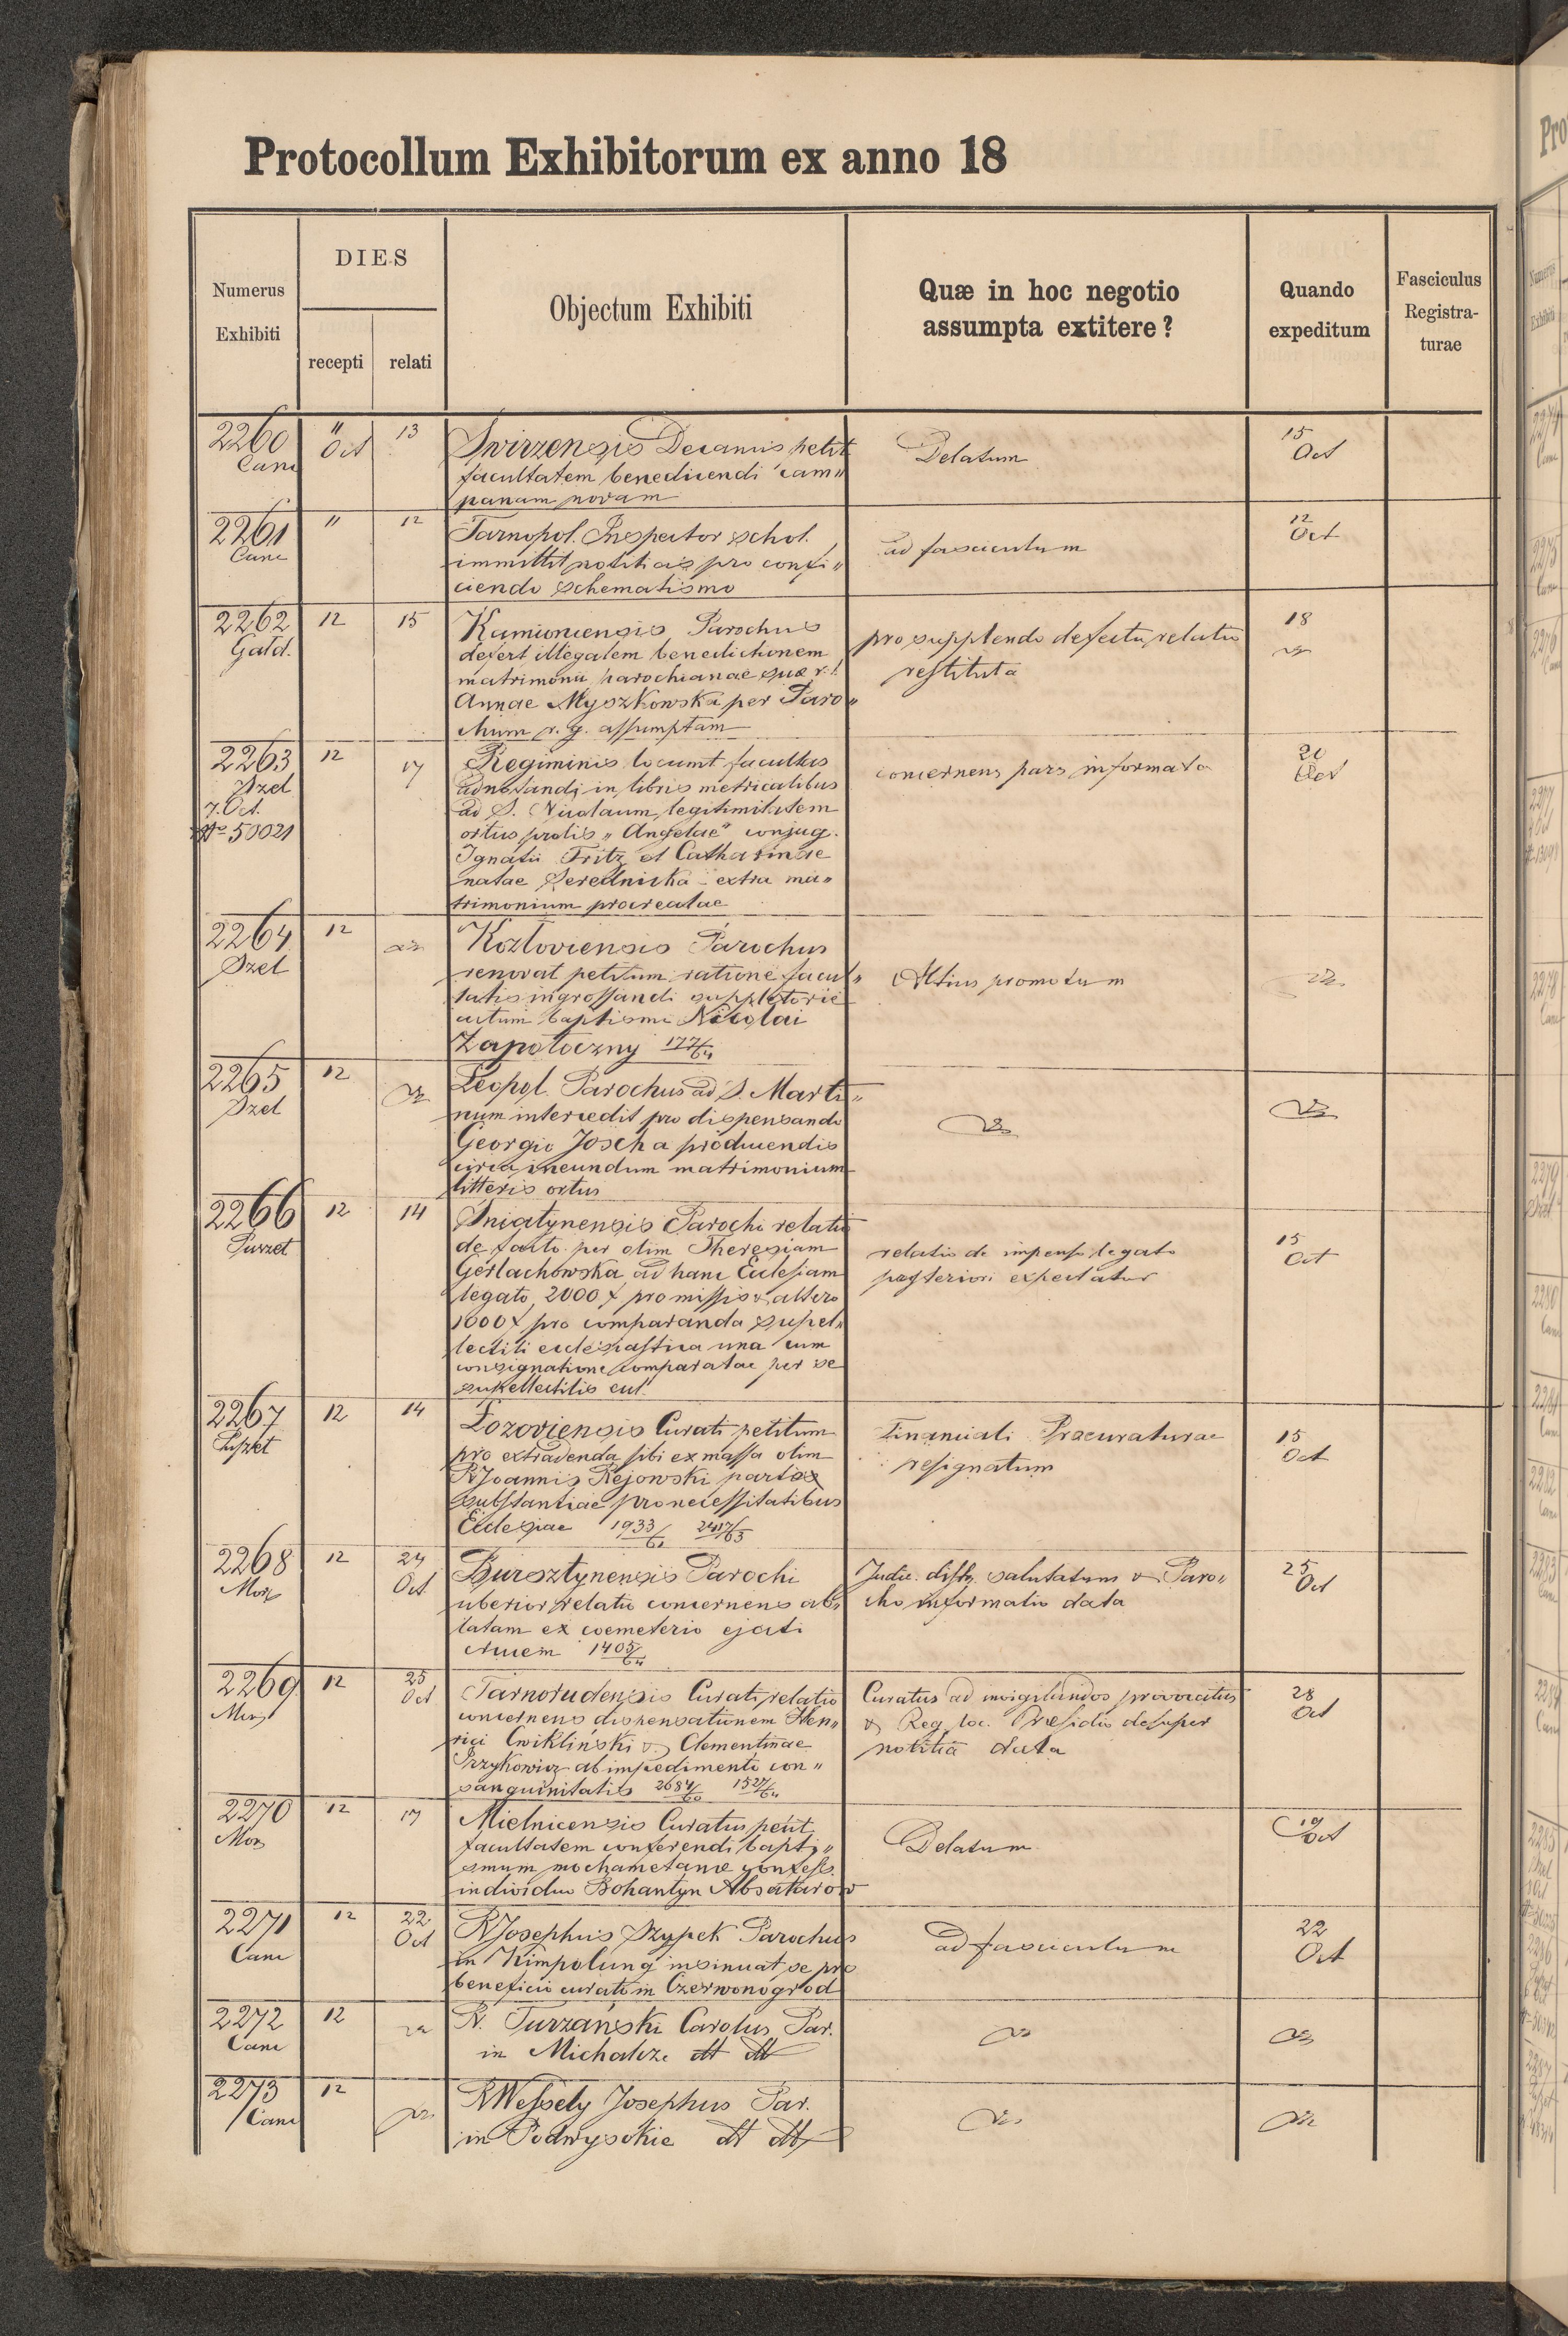 Protocollum Exhibitorum ex anno 18
Numerus
Exhibiti
DIES
recepti
relati
Objectum Exhibiti
Quæ in hoc negotio
assumpta extitere?
Quando
expeditum
Fasciculus
Registra-
turae
2260
Canc
11
Oct
13
Swirzensis Decanus petit
facultatem benedicendi cam„
panam novam
Delatum
15
Oct
2261
Canc
11
12
Tarnopol. Inspector schol.
immittit notitias pro confi„
ciendo schematismo
ad fasciculum
12
Oct
2262
Gald.
12
15
Kamionensis Parochus
defert illegalem benedictionem
matrimonii parochianae suae r. l.
Annae Myszkowska per Paro„
chum r. g. assumptam
pro supplendo defectu relatio
restituta
18
2263
Szel
7. Oct.
No 50021
12
17
Regiminis locumt facultas
adnotandi in libris metricalibus
ad S. Nicolaum legitimitatem
ortus prolis „Angelae" conjug.
Ignatii Fritz et Catharinae
natae Serednicka – extra ma„
trimonium procreatae
concernens pars informata
20
Oct
2264
Szel
12
Kozloviensis Parochus
renovat petitum ratione facul„
tatis ingrossandi suppletorie
actum baptismi Nicolai
Zapotoczny 177/64
Altius promotum
2265
Szel
12
Leopol. Parochus ad S. Marti„
num intercedit pro dispensando
Georgio Joscha producendis
circa ineundum matrimonium
litteris ortus
2266
12
14
Sniatynensis Parochi relatio
de facto per olim Theresiam
Gerlachowska ad hanc Ecclesiam
legato 2000 f promisso & altero
1000 f pro comparanda supel„
lectili ecclesiastica una cum
consignatione comparatae per se
supellectilis eccl.
relatio de impenso legato
posteriori expectatur
15
Oct
2267
12
14
Łozoviensis Curati petitum
pro extradenda sibi ex massa olim
R Joannis Rejowski parte
substantiae pro necessitatibus
Ecclesiae 1933/61 2417/63
Financiali Procuraturae
resignatum
15
Oct
2268
Mor
12
24
Oct
Bursztynensis Parochi
uberior relatio concernens ab„
latam ex coemeterio ejati
crucem 1405/64
Judic. distr. salutatum & Paro„
cho informatio data
25
Oct
2269
Mor
12
25
Oct
Tarnorudensis Curati relatio
concernens dispensationem Hen„
rici Cwikliński & Clementinae
Przykowicz ab impedimento con„
sanguinitatis 2684/60 1527/64
Curatus ad invigilandos provocatus
& Reg. loc. Præsidio desuper
notitia data
28
Oct
2270
Mor
12
17
Mielnicensis Curatus petit
facultatem conferendi bapti„
smum mochametanae confess.
individuo Bohantyn Absatarow
Delatum
19
Oct
2271
Canc
12
22
Oct
R Josephus Szypek Parochus
in Kimpolung insinuat se pro
beneficio curato in Czerwonogrod
ad fasciculum
22
Oct
2272
Canc
12
R. Turzański Carolus Par.
in Michalcze dt dt
2273
Canc
12
R Wessely Josephus Par.
in Podwysokie dt dt